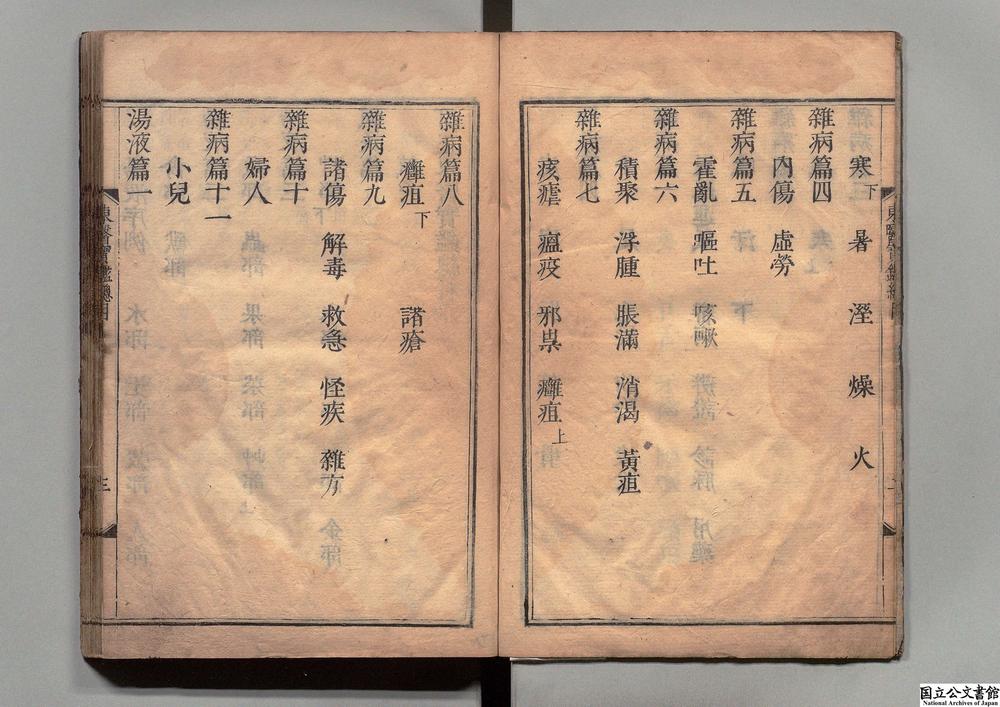 寒下 暑 溼 燥 火
雜病篇四
內傷 虛勞
雜病篇五
霍亂 嘔吐 咳嗽
雜病篇六
積聚 浮腫 脹滿 消渴 黃疸
雜病篇七
痎瘧 瘟疫 邪祟 癰疽上
雜病篇八
癰疽下 諸瘡
雜病篇九
諸傷 解毒 救急 怪疾 雜方
雜病篇十
婦人
雜病篇十一
小兒
湯液篇一
東醫寶鑑總目
三
国立公文書館
National Archives of Japan